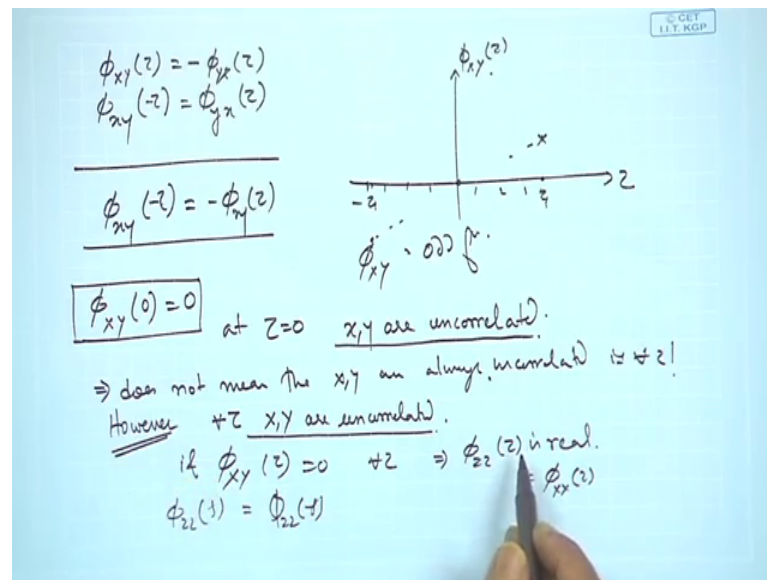 © CET
I.I.T. KGP
ϕxy(τ) = -ϕyx(τ)
ϕxy(-τ) = ϕyx(τ)
ϕxy(-τ) = -ϕxy(τ)
ϕxy(τ)
x
-τ1
τ1
τ
ϕxy → odd fn.
ϕxy(0) = 0
at τ=0 x,y are uncorrelated.
⇒ does not mean the x,y are always uncorrelated ie ∀τ!
However ∀τ x,y are uncorrelated.
if ϕxy(τ) = 0 ∀τ ⇒ ϕzz(τ) is real.
= ϕxx(τ)
ϕzz(f) = ϕzz(-f)